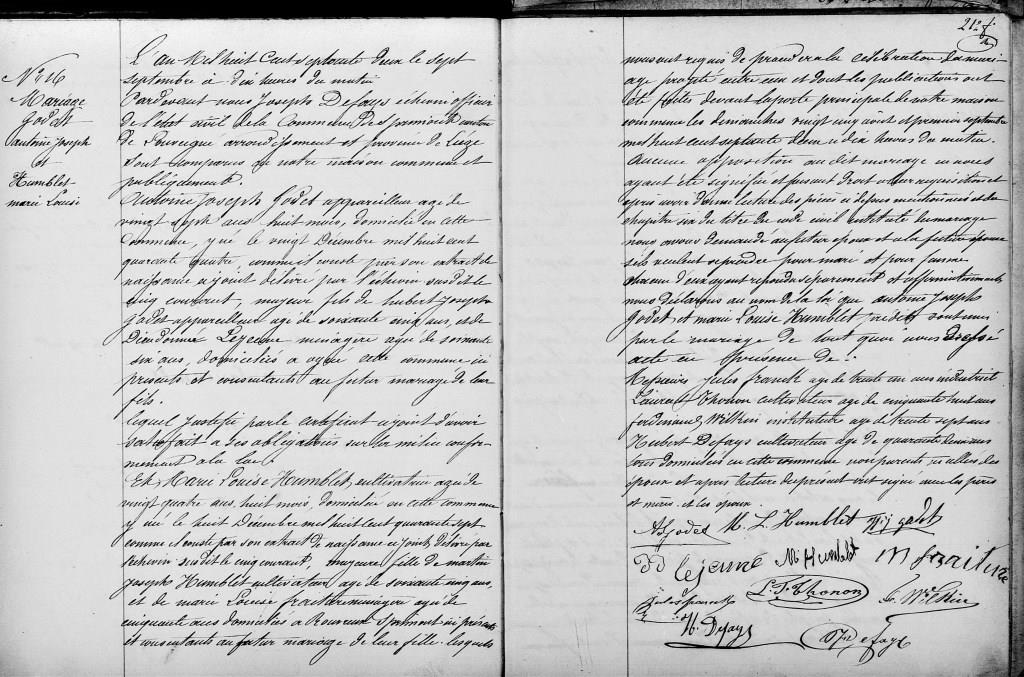 N° 16
Mariage
Godet
antoine Joseph
et
Humblet
marie Louise
L'an Mil huit Cent septante deux le sept
septembre à dix heures du matin
Pardevant nous Joseph Defays échevin officier
de l'état civil de la Commune de Sprimont canton
de Louveigné arrondissement et province de Liége
Sont comparus en notre maison commune et
publiquement.
Antoine Joseph Godet appareilleur agé de
vingt sept ans huit mois, domicilié en cette
Commune, y né le vingt Décembre mil huit cent
quarante quatre, comme il conste par son extrait de
naissance ajoint délivré par l'échevin susdit le
cinq courant, majeur fils de hubert Joseph
Godet appareilleur agé de soixante cinq ans, et de
Dieudonnée Lejeune menagère agée de soixante
six ans, domiciliés a ogné cette commune ici
presents et consentants au futur mariage de leur
fils.
lequel Justifie par le certificat ajoint d'avoir
satisfait à ses obligations sur la milice confor-
mement a la loi.
Et, Marie Louise Humblet, cultivatrice agée de
vingt quatre ans, huit mois, domiciliée en cette commune
y née le huit Décembre mil huit cent quarante sept
comme il conste par son extrait de naissance ci joint, délivré par
l'échevin susdit le cinq courant, majeure fille de martin
Joseph Humblet cultivateur agé de soixante cinq ans,
et de marie Louise fraiture menagère agée de
cinquante ans domiciliés a Rouvreux Sprimont ici présents
et consentants au futur mariage de leur fille. lesquels
21
nous ont requis de procéder a la célébration du mari-
age projeté entre eux et dont les publications ont
été faites devant la porte principale de notre maison
commune les dimanches vingt cinq août et premier septembre
mil huit cent septante deux a dix heures du matin.
Aucune opposition au dit mariage ne nous
ayant été signifiée et faisant droit a leur requisition et
apres avoir donné lecture des pièces ci dessus mentionnées et du
chapitre six du titre du code civil intitulé du mariage
nous avons demandé au futur époux et a la future épouse
s'ils veulent se prendre pour mari et pour femme
chacun d'eux ayant répondu séparement et affirmativement
nous déclarons au nom de la loi que antoine Joseph
Godet, et marie Louise Humblet, susdits sont unis
par le mariage de tout quoi nous Dressé
acte en presence de:
Messieurs Jules franck agé de trente un ans industriel
Laurent Thonon cultivateur agé de cinquante huit ans
ferdinand Wilkin instituteur agé de trente sept ans
Hubert Defays cultivateur agé de quarante deux ans
tous domiciliés en cette commune non parents ni alliés des
époux et après lecture du present ont signé avec les pères
et mères et les époux.
A J godet M. L Humblet H. j godet
DD lejeune M. Humblet M fraiture
Jules franck L. J. Thonon f. Wilkin
H. Defays J Defays